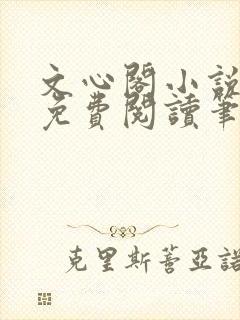 文心閣小說
免費閱讀筆
克里斯蒂亞諾